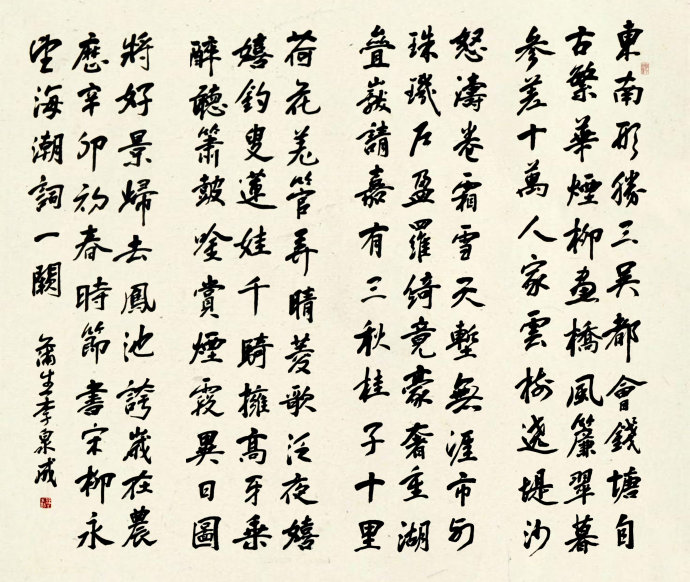 東南形勝三吳都會錢塘自
古繁華煙柳畫橋風簾翠暮
參差十萬人家雲樹遶堤沙
怒濤卷霜雪天塹無涯市列
珠璣戶盈羅綺竟豪奢重湖
疊巘請嘉有三秋桂子十里
荷花羌管弄晴菱歌泛夜嬉
嬉釣叟蓮娃千騎擁高牙乘
醉聽簫鼓唫賞煙霞異日圖
將好景歸去鳳池誇歲在農
歷辛卯初春時節書宋柳永
望海潮詞一闋
蒲生李泉成